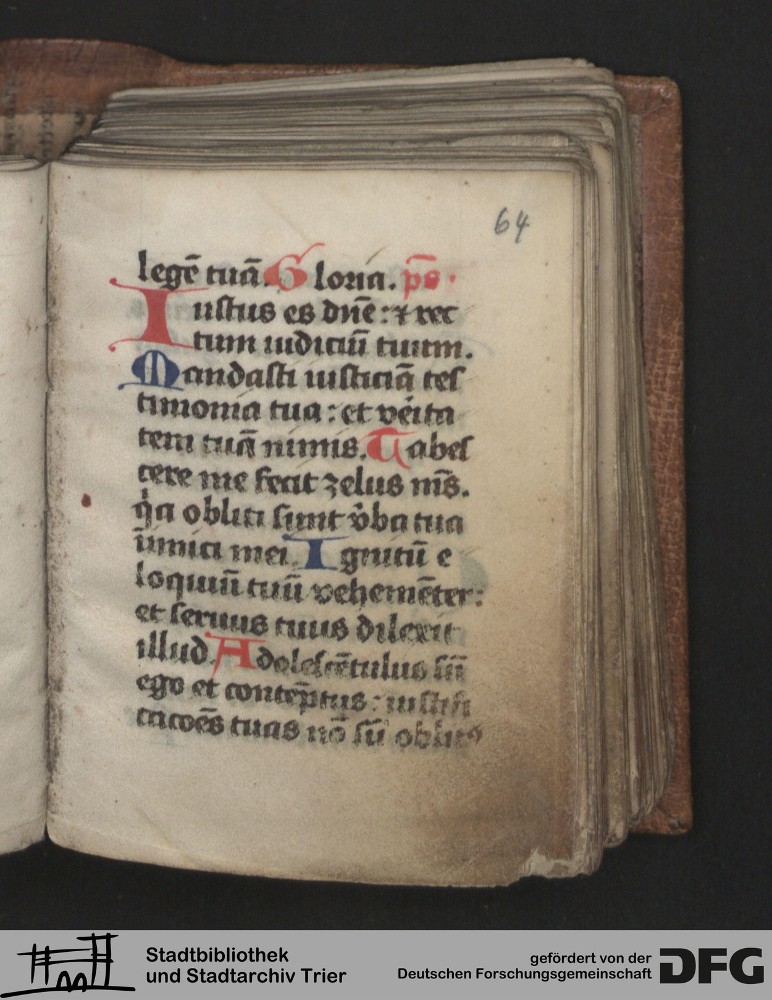 64
legē tuā. Gloria. ps̄.
Iustus es dn̄e: ⁊ rec
tum iudiciū tuum.
Mandasti iusticiā tes
timonia tua: et veīta
tem tuā nimis. Tabes
cere me fecit zelus ms̄.
q̇a obliti sunt v̇ba tua
īimici mei. Ignitū e
loquiū tuū vehemēter:
et seruus tuus dilexit
illud. Adolescētulus sū
ego et contēptus: iustifi
cacōes tuas nō sū oblitꝰ
Stadtbibliothek
und Stadtarchiv Trier
gefördert von der
Deutschen Forschungsgemeinschaft
DFG